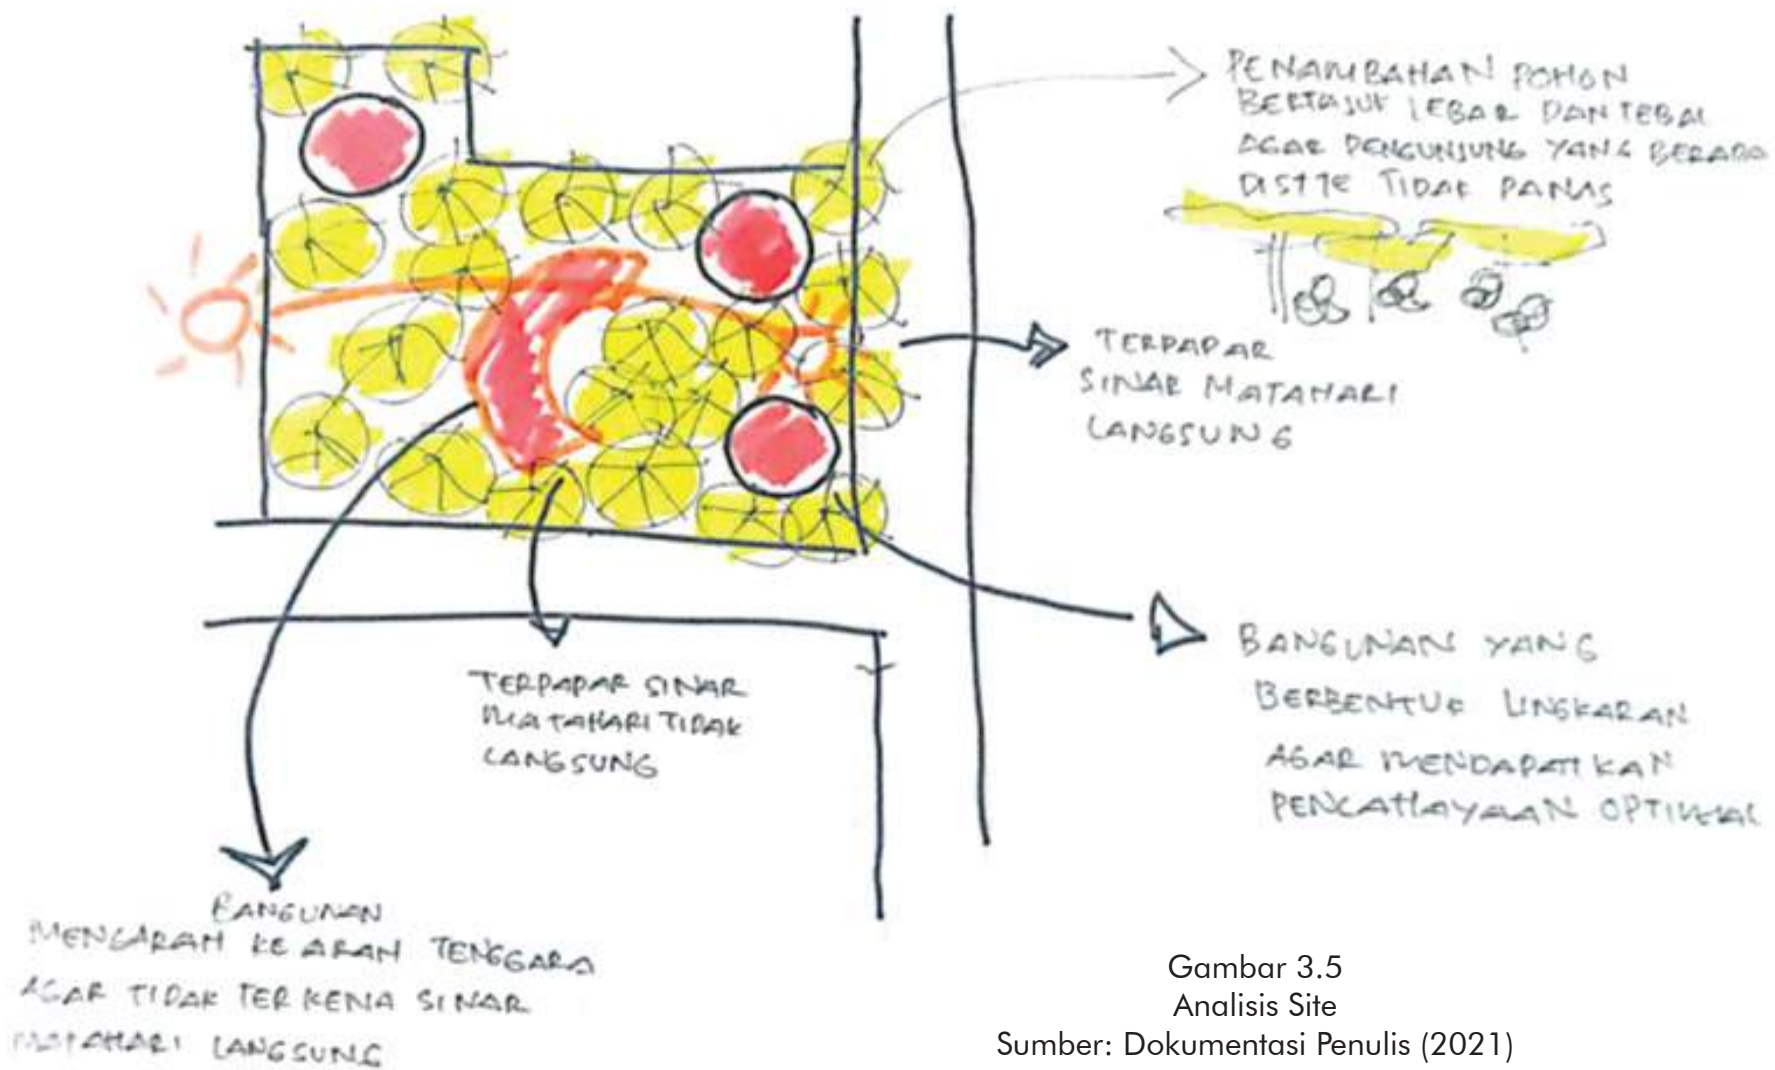 PENAMBAHAN POHON
BERTAJUK LEBAR DAN TEBAL
AGAR PENGUNJUNG YANG BERADA
DISITE TIDAK PANAS
TERPAPAR
SINAR MATAHARI
LANGSUNG
BANGUNAN YANG
BERBENTUK LINGKARAN
AGAR MENDAPATKAN
PENCAHAYAAN OPTIMAL
TERPAPAR SINAR
MATAHARI TIDAK
LANGSUNG
BANGUNAN
MENGARAH KE ARAH TENGGARA
AGAR TIDAK TERKENA SINAR
MATAHARI LANGSUNG
Gambar 3.5
Analisis Site
Sumber: Dokumentasi Penulis (2021)